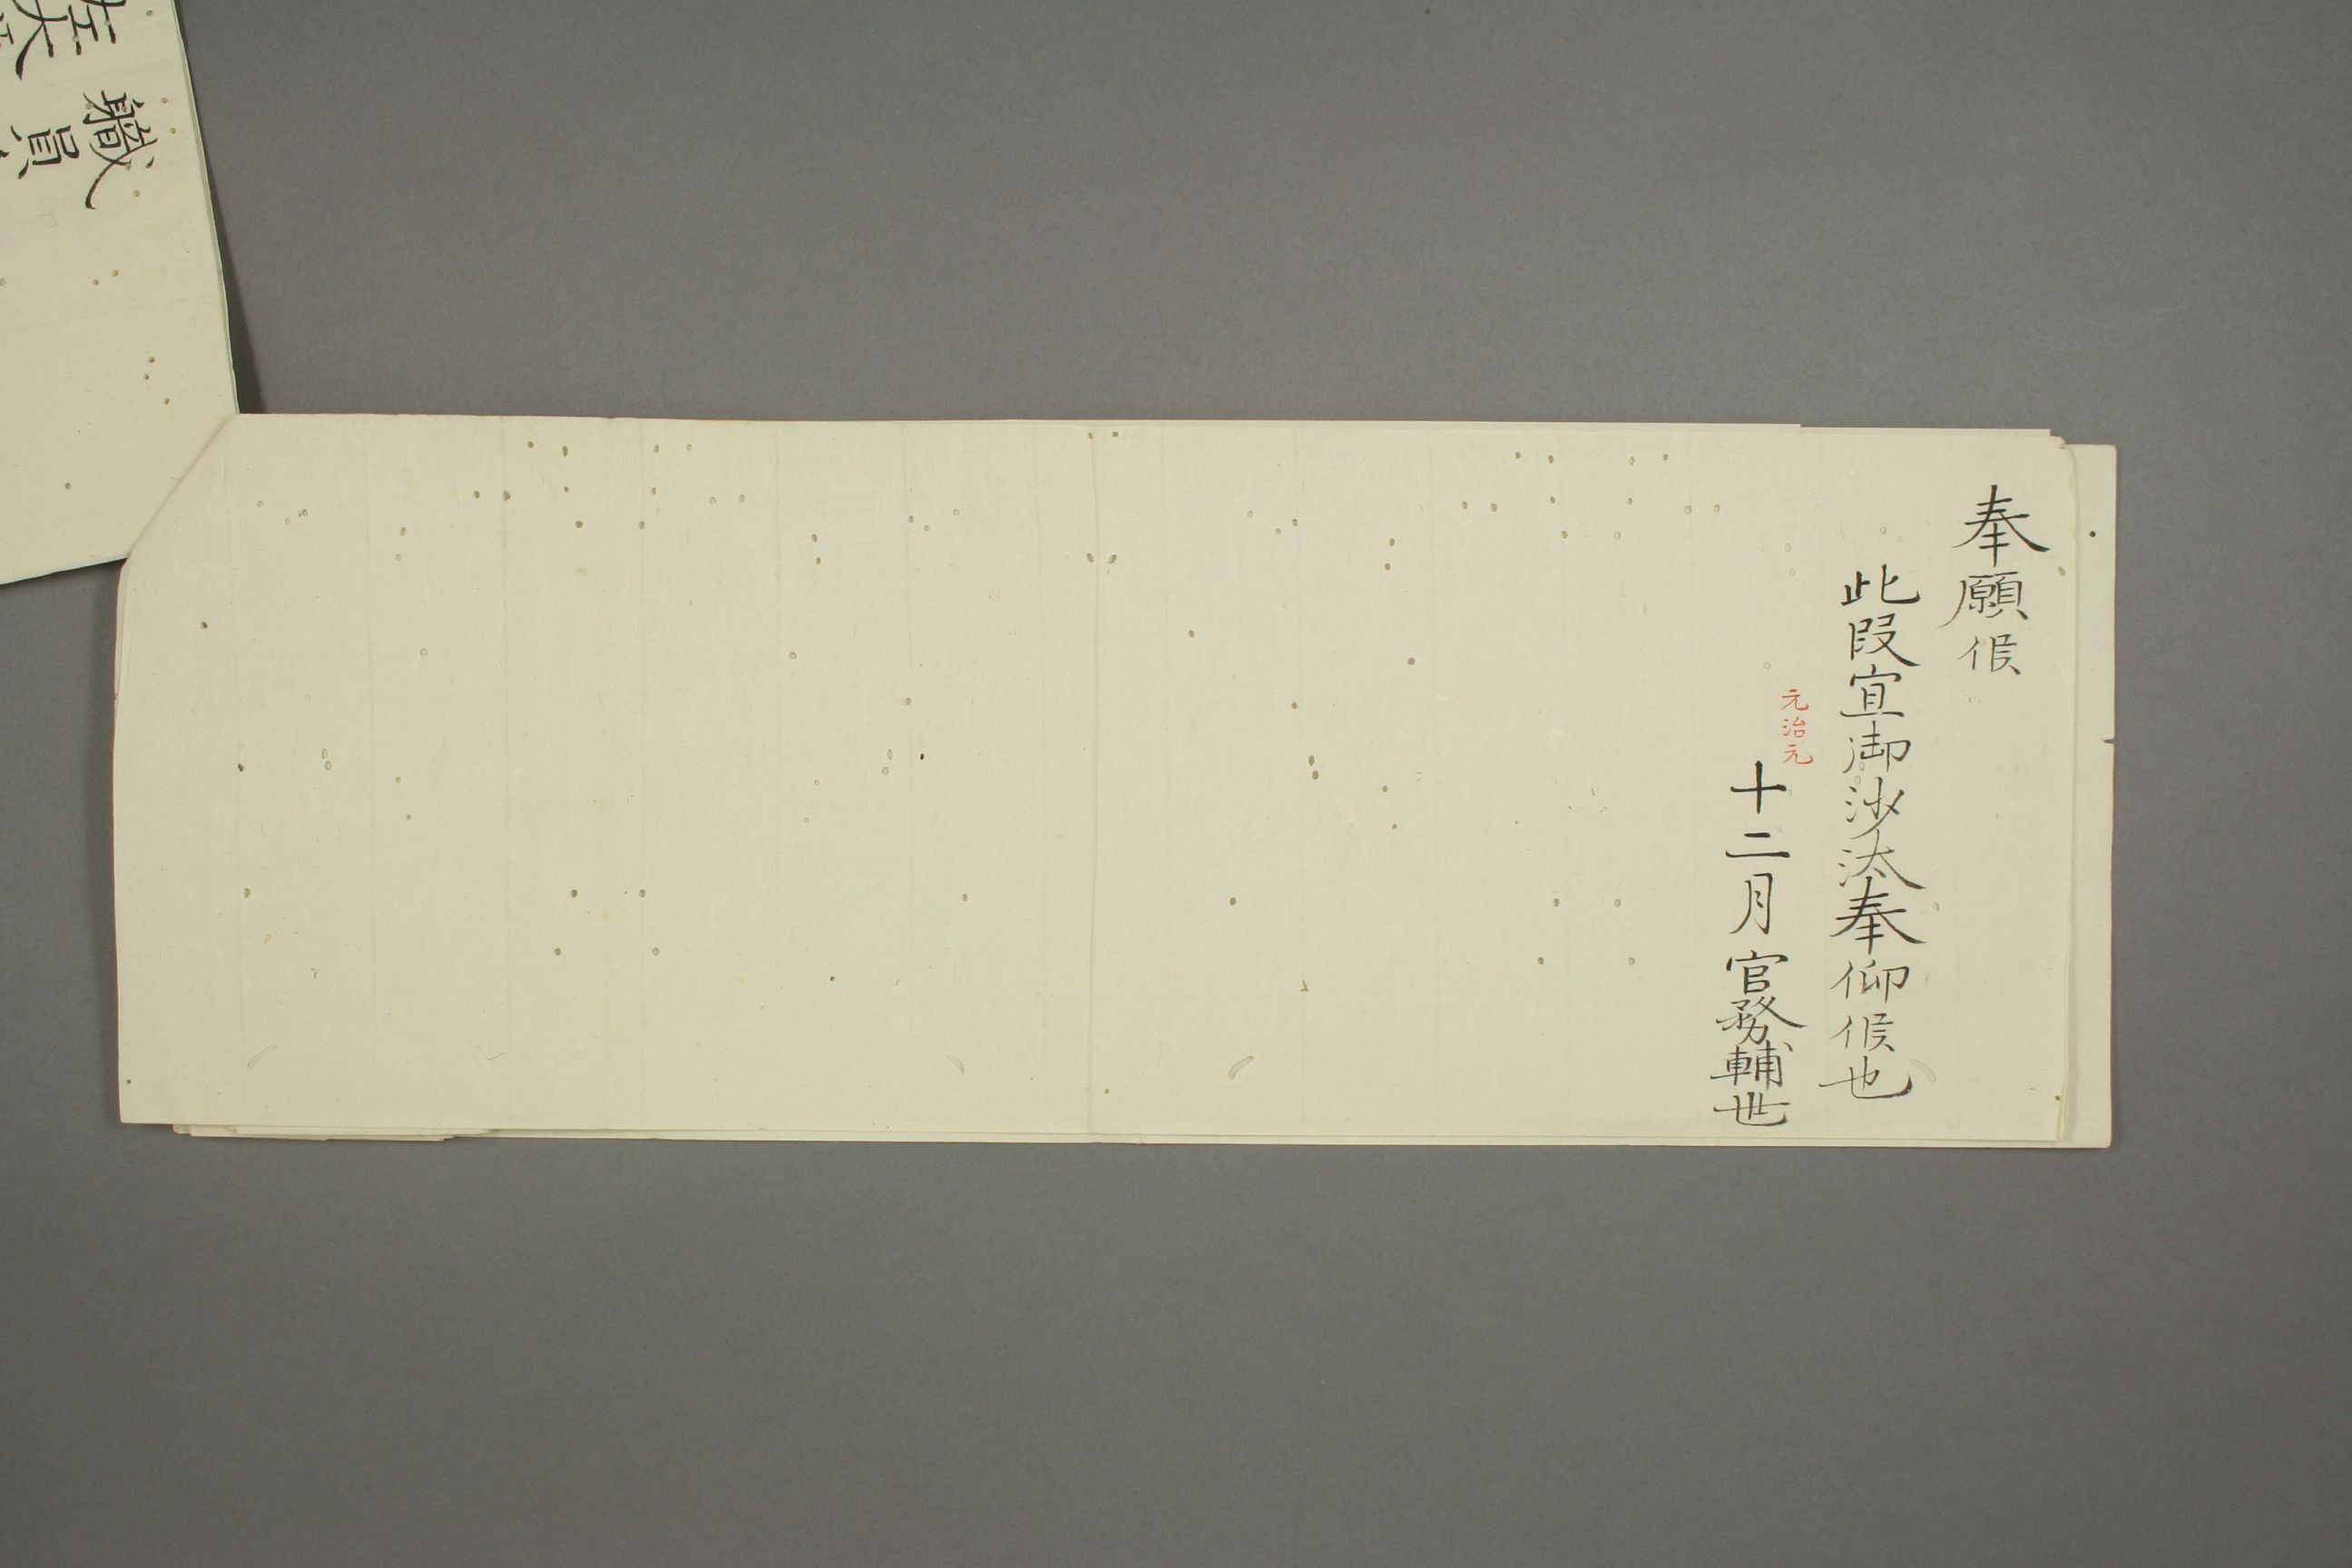 奉願候
此段宜御沙汰奉仰候也
元治元
十二月官務輔世
職員
左大